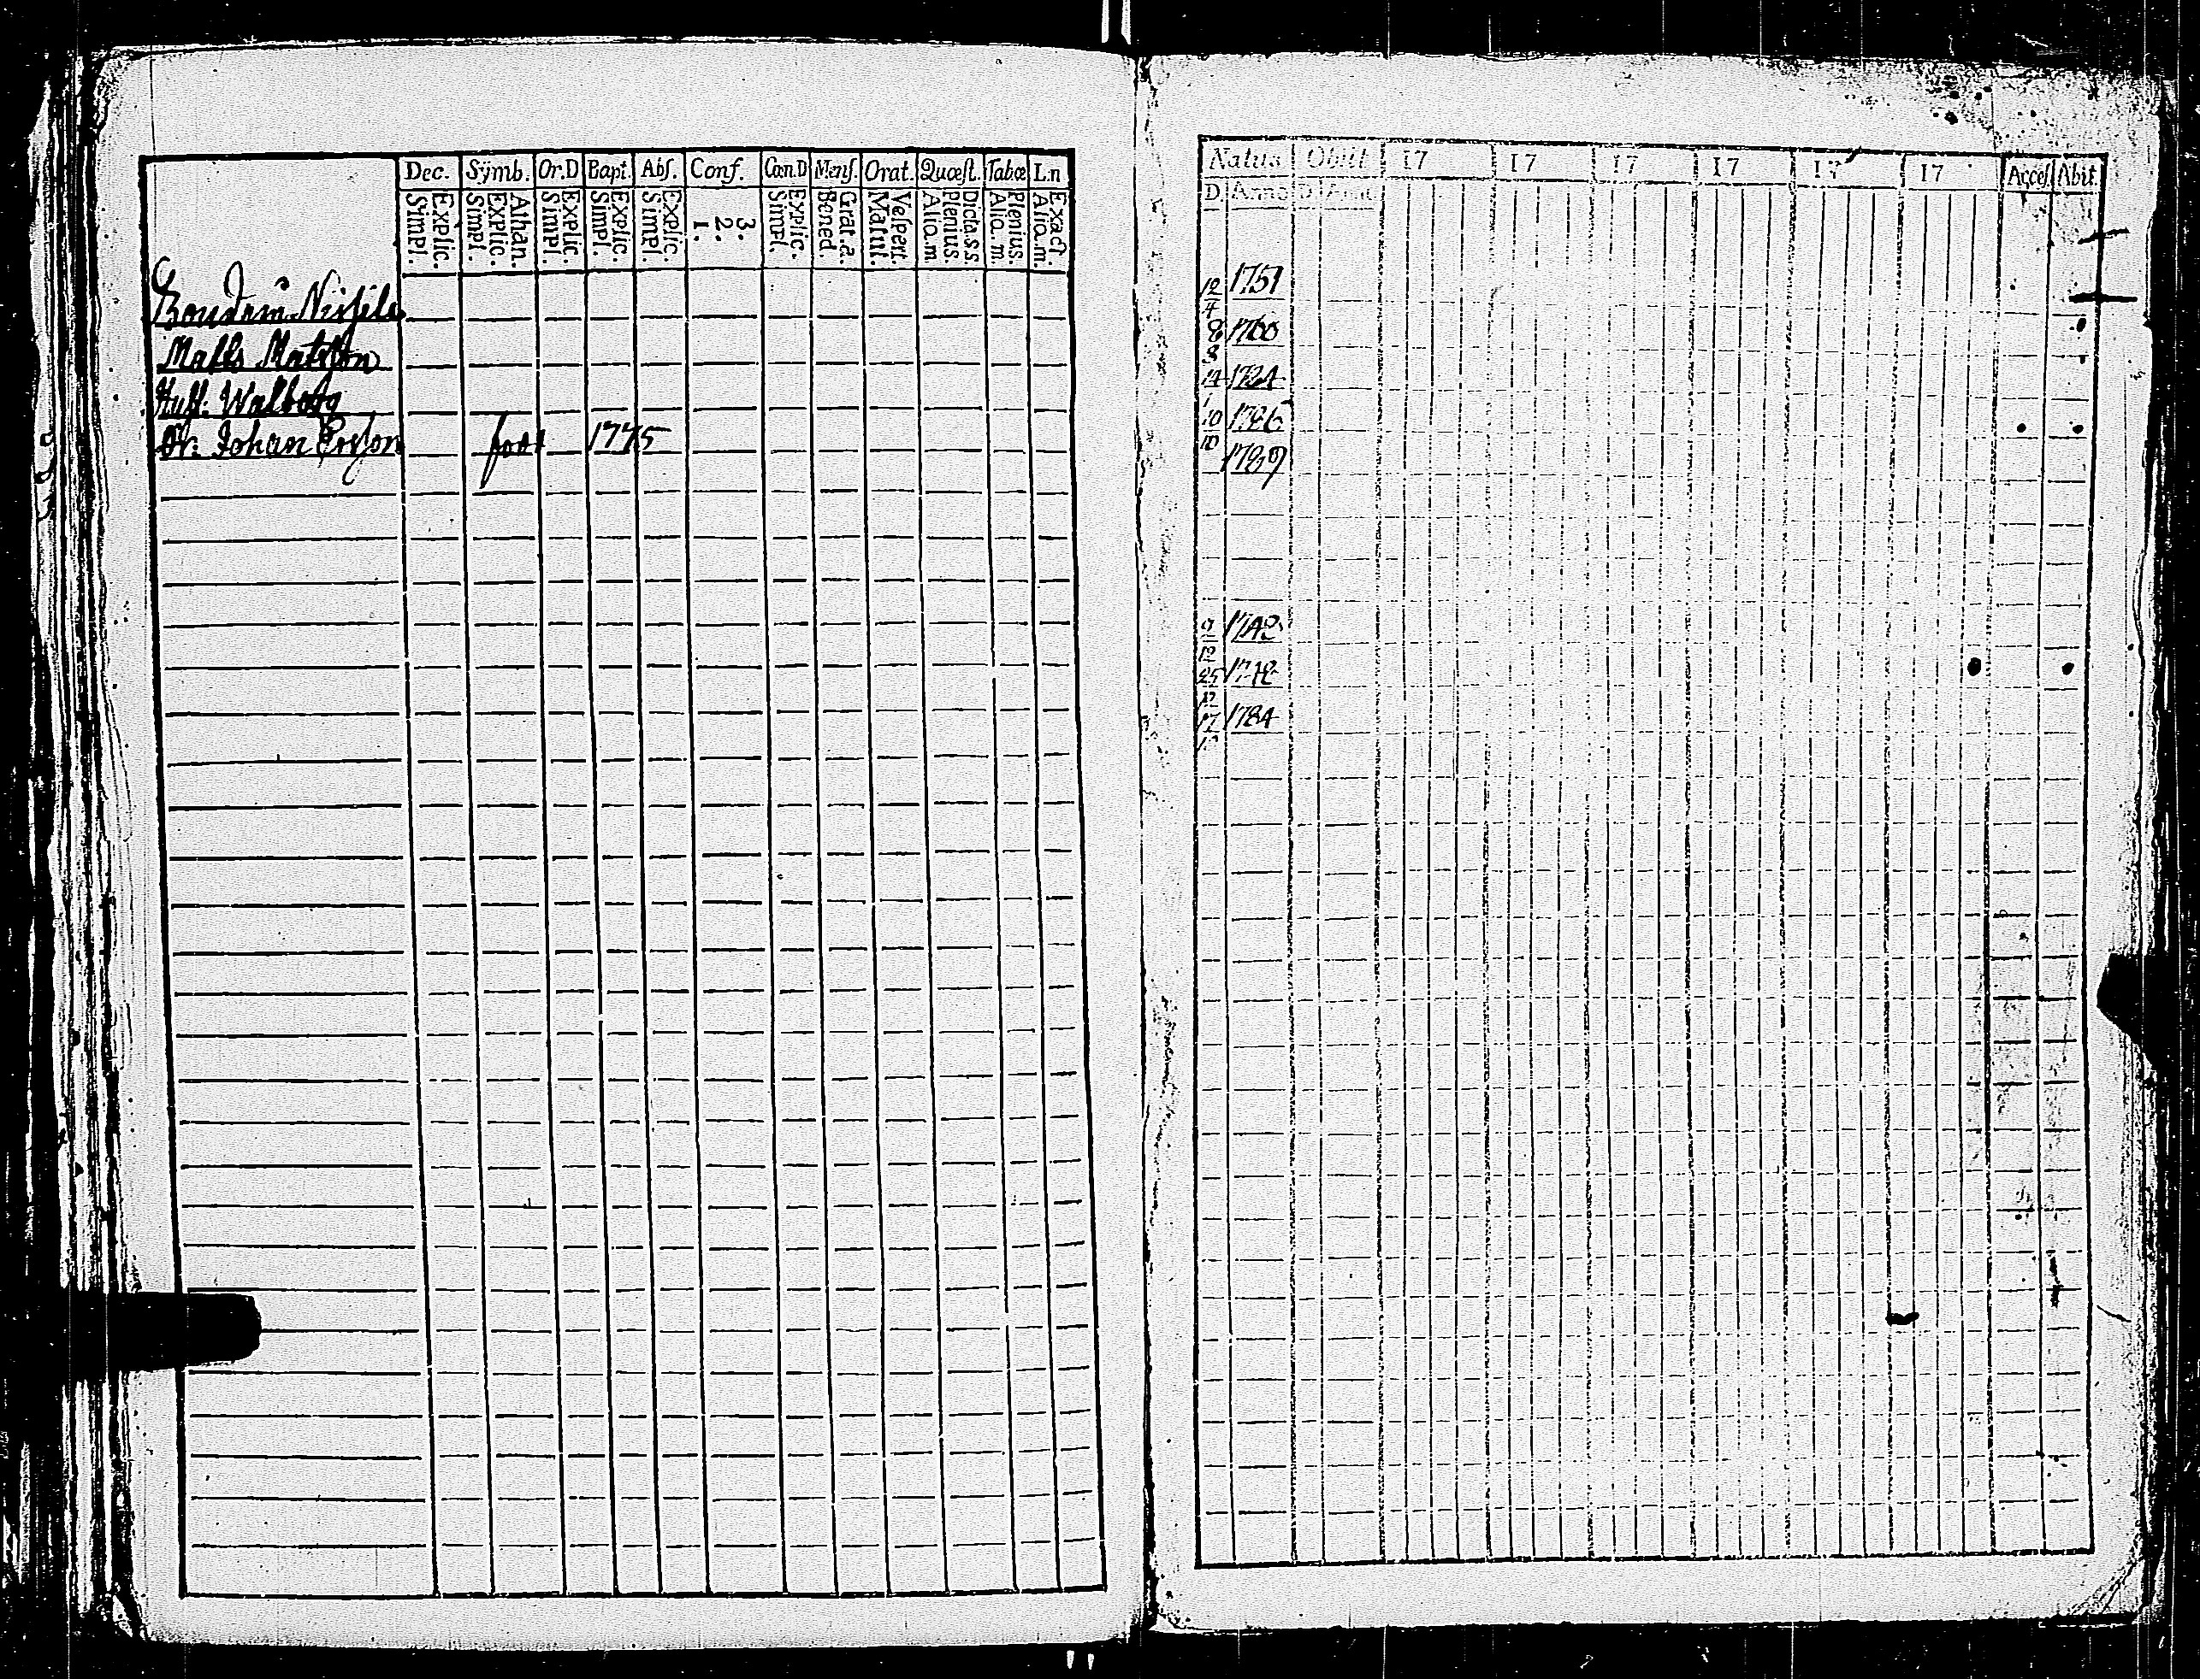 Dec. Symb. Or.D Bapt. Abs. Conf. Cœn.D Mens. Orat. Quæst. Tabœ L.n
Explic. Simpl. Athan. Explic. Simpl. Explic. Simpl. Explic. Simpl. Explic. Simpl. 3. 2. 1. Explic. Simpl. Grat.a. Bened. Vespert. Matut. Dicta.S.S. Plenius. Alia.m Plenius. Alia.m Exact. Alia.m.
Matts Matsson
Hust: Walborg
Dr: Johan Ersson född 1775
Natus Obiit 17 17 17 17 17 17 Acces Abit.
D. Anno D. Anno
12/4 1751
8/8 1760
14/1 1784
10/10 1786
1789
9/12 1748
25/12
17 1784